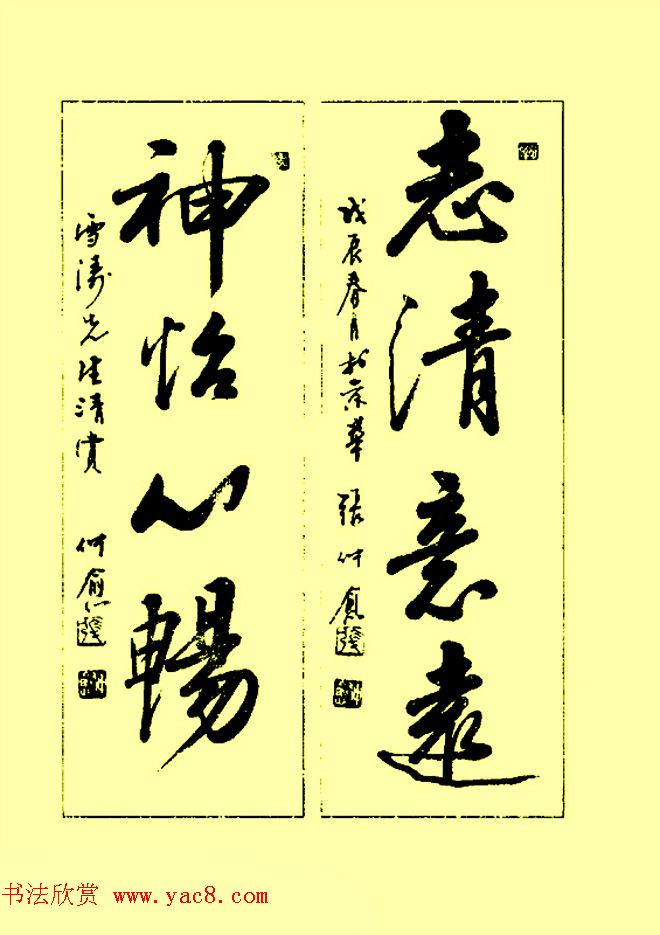 志清意遠
戊辰春月於京華 張仲愈
神怡心暢
雪濤先生清赏 仲愈
书法欣赏 www.yac8.com